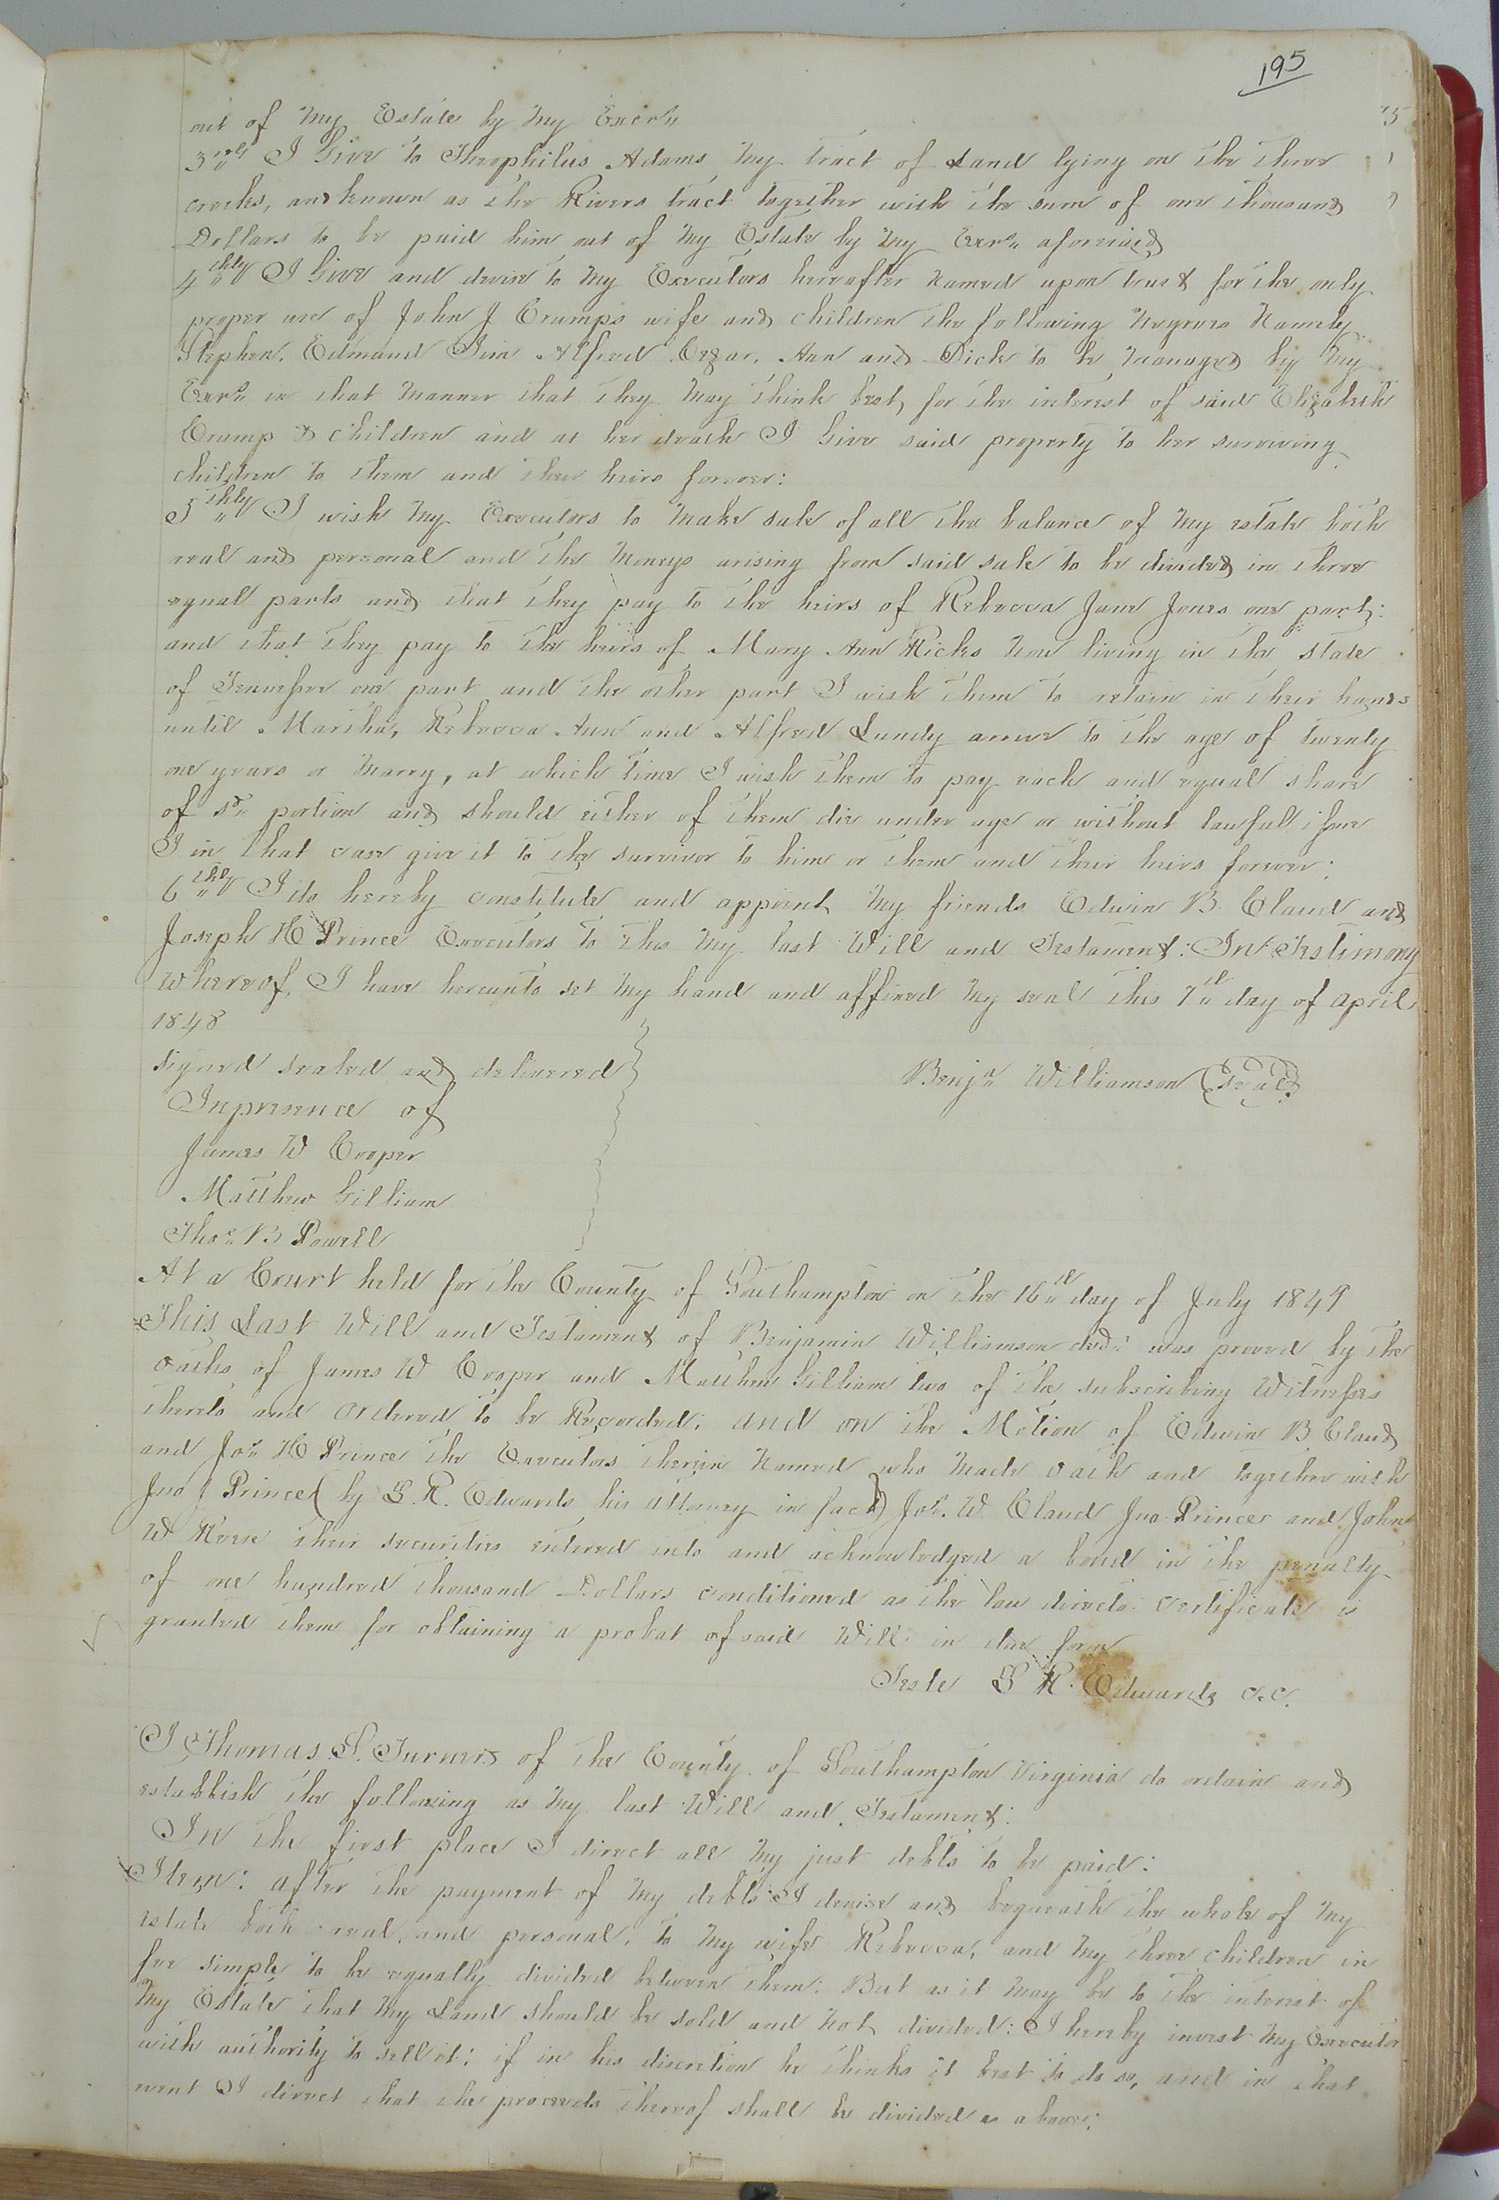 195
out of My Estate by My Exor's
3rdly I Give to Theophilus Adams My tract of Land lying on the three
creeks, and known as the Rivers tract together with the sum of one thousand
Dollars to be paid him out of My Estate by My Exors aforesaid
4thly I Give and devise to My Executors hereafter Named upon trust for the only
proper use of John J Crumps wife and children the following Negroes Namely
Stephen, Edmund Jim Alfred Cezar, Ann and Dick to be Managed by My
Exors in that Manner that they May think best, for the interest of said Elizabeth
Crump & children and at her death I Give said property to her surviving
children to them and their heirs forever:
5thly I wish My Executors to Make sale of all the balance of My estate both
real and personal and the Moneys arising from said sale to be divided in three
equal parts and that they pay to the heirs of Rebecca Jane Jones one part:
and that they pay to the heirs of Mary Ann Ricks Now living in the state
of Tennessee one part and the other part I wish them to retain in their hands
until Martha, Rebecca Ann and Alfred Lundy arrive to the age of twenty
one years or Marry, at which time I wish them to pay each and equal share
of sd portion and should either of them die under age or without lawful issue
I in that case give it to the survivor to him or them and their heirs forever:
6thly I do hereby constitute and appoint My friends Edwin B. Claud and
Joseph H Prince Executors to this My last Will and Testament: In Testimony
whereof I have hereunto set My hand and affixed My seal this 7th day of April
1848
Signed sealed and delivered
Benjn Williamson (Seal)
In presence of
James W Cooper
Matthew Gilliam
Thos B Powell
At a Court held for the County of Southampton on the 16th day of July 1849
This Last Will and Testament of Benjamin Williamson decd: was proved by the
oaths of James W Cooper and Matthew Gilliam two of the subscribing Witnesses
thereto and Ordered to be Recorded: and on the Motion of Edwin B Claud
and Jos H Prince the Executors therein Named who Made oath and together with
Jno J Prince (by L. R. Edwards his attorney in fact) Jos. W Claud Jno Prince and John
W their securities entered into and acknowledged a bond in the penalty
of one hundred thousand Dollars conditioned as the law directs certificate is
granted them for obtaining a probat of said Will in due form
Teste L R. Edwards C.C.
I Thomas L. Turner of the County of Southampton Virginia do ordain and
establish the following as My last Will and Testament:
In the first place I direct all My just debts to be paid:
Item: after the payment of My debts I devise and bequeath the whole of My
estate both real, and personal, to My wife Rebecca, and My three children in
fee simple to be equally divided between them: But as it May be to the interest of
My Estate that My Land should be sold and Not divided: I hereby invest My Executor
with authority to sell it: if in his discretion he thinks it best to do so, and in that
event I direct that the proceeds thereof shall be divided as above: